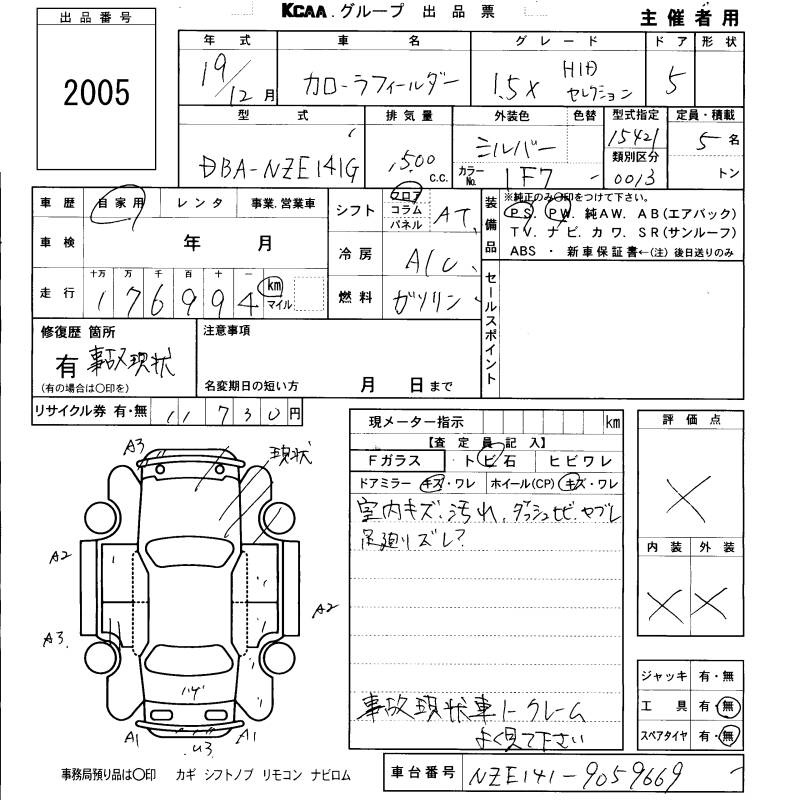 KCAA.グループ 出品票
主催者用
出品番号
2005
年式 車名 グレード ドア 形状
19/12月 カローラフィールダー 1.5X HID セレクション 5
型式 排気量 外装色 色替 型式指定 定員・積載
DBA-NZE141G 1500 c.c. シルバー 15421 5名
カラーNo. 1F7 類別区分 0013 トン
車歴 自家用 レンタ 事業.営業車
シフト フロア コラム パネル AT
装備品 ※純正のみ○印をつけて下さい。
P S. P W. 純AW. AB(エアバック)
TV. ナビ. カワ. SR(サンルーフ)
ABS ・ 新車保証書←(注) 後日送りのみ
車検 年 月
冷房 A/C
走行 十万 万 千 百 十 一
176994 km マイル
燃料 ガソリン
セールスポイント
修復歴 箇所
有 事故現状
(有の場合は○印を)
注意事項
名変期日の短い方 月 日まで
リサイクル券 有・無 11730円
現メーター指示 km
【査定員記入】
Fガラス トビ石 ヒビワレ
ドアミラー キズ・ワレ ホイール(CP) キズ・ワレ
室内キズ、汚れ、ダッシュヒビ、ヤブレ
足廻リズレ?
事故現状車ノークレーム
よく見て下さい
評価点
×
内装 外装
× ×
ジャッキ 有・無
工具 有・無
スペアタイヤ 有・無
A3
現状
A2
A2
A3
バゲ
A1
U3
A1
事務局預り品は○印 カギ シフトノブ リモコン ナビロム
車台番号 NZE141-9059669